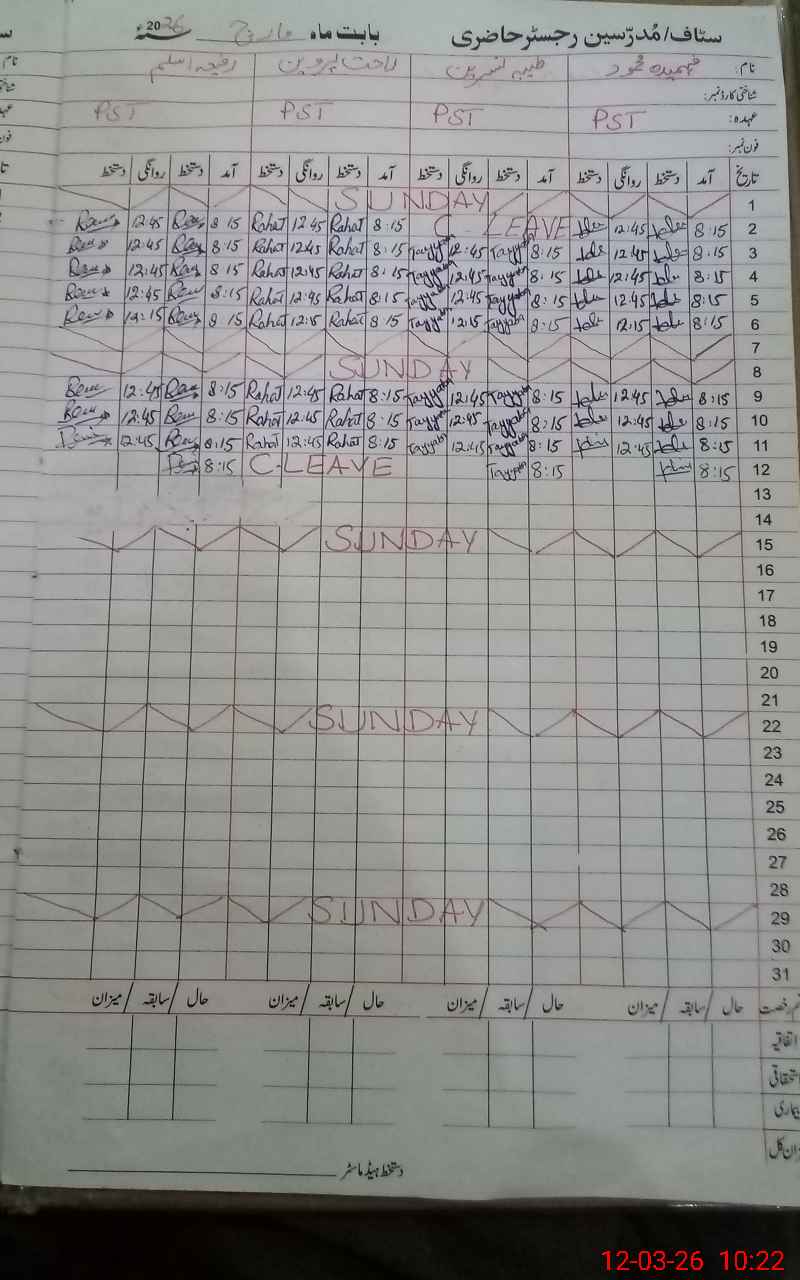 سٹاف/مُدرّسین رجسٹر حاضری بابت ماہ مارچ 2026ء
نام: فہمیدہ محمود طیبہ نسرین راحت پروین رفیعہ اسلم
شناختی کارڈ نمبر:
عہدہ: PST PST PST PST
فون نمبر:
تاریخ آمد دستخط روانگی دستخط آمد دستخط روانگی دستخط آمد دستخط روانگی دستخط آمد دستخط روانگی دستخط
SUNDAY 1
12:45 8:15 Rahat 12:45 Rahat 8:15 C. LEAVE 12:45 8:15 2
12:45 8:15 Rahat 12:45 Rahat 8:15 Tayyaba 12:45 Tayyaba 8:15 12:45 8:15 3
12:45 8:15 Rahat 12:45 Rahat 8:15 Tayyaba 12:45 Tayyaba 8:15 12:45 8:15 4
12:45 8:15 Rahat 12:45 Rahat 8:15 Tayyaba 12:45 Tayyaba 8:15 12:45 8:15 5
12:15 8:15 Rahat 12:15 Rahat 8:15 Tayyaba 12:15 Tayyaba 8:15 12:15 8:15 6
7
SUNDAY 8
12:45 8:15 Rahat 12:45 Rahat 8:15 Tayyaba 12:45 Tayyaba 8:15 12:45 8:15 9
12:45 8:15 Rahat 12:45 Rahat 8:15 Tayyaba 12:45 Tayyaba 8:15 12:45 8:15 10
12:45 8:15 Rahat 12:45 Rahat 8:15 Tayyaba 12:45 Tayyaba 8:15 12:45 8:15 11
8:15 C-LEAVE Tayyaba 8:15 8:15 12
13
14
SUNDAY 15
16
17
18
19
20
21
SUNDAY 22
23
24
25
26
27
28
SUNDAY 29
30
31
رخصت حال / سابقہ / میزان حال / سابقہ / میزان حال / سابقہ / میزان حال / سابقہ / میزان
اتفاقیہ
استحقاقی
بیماری
میزان کل
دستخط ہیڈ ماسٹر
12-03-26 10:22